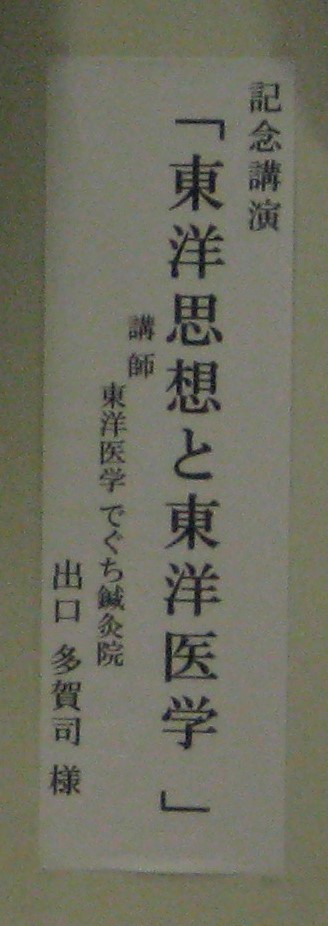 記念講演
「東洋思想と東洋医学」
講師
東洋医学 でぐち鍼灸院
出口 多賀司 様